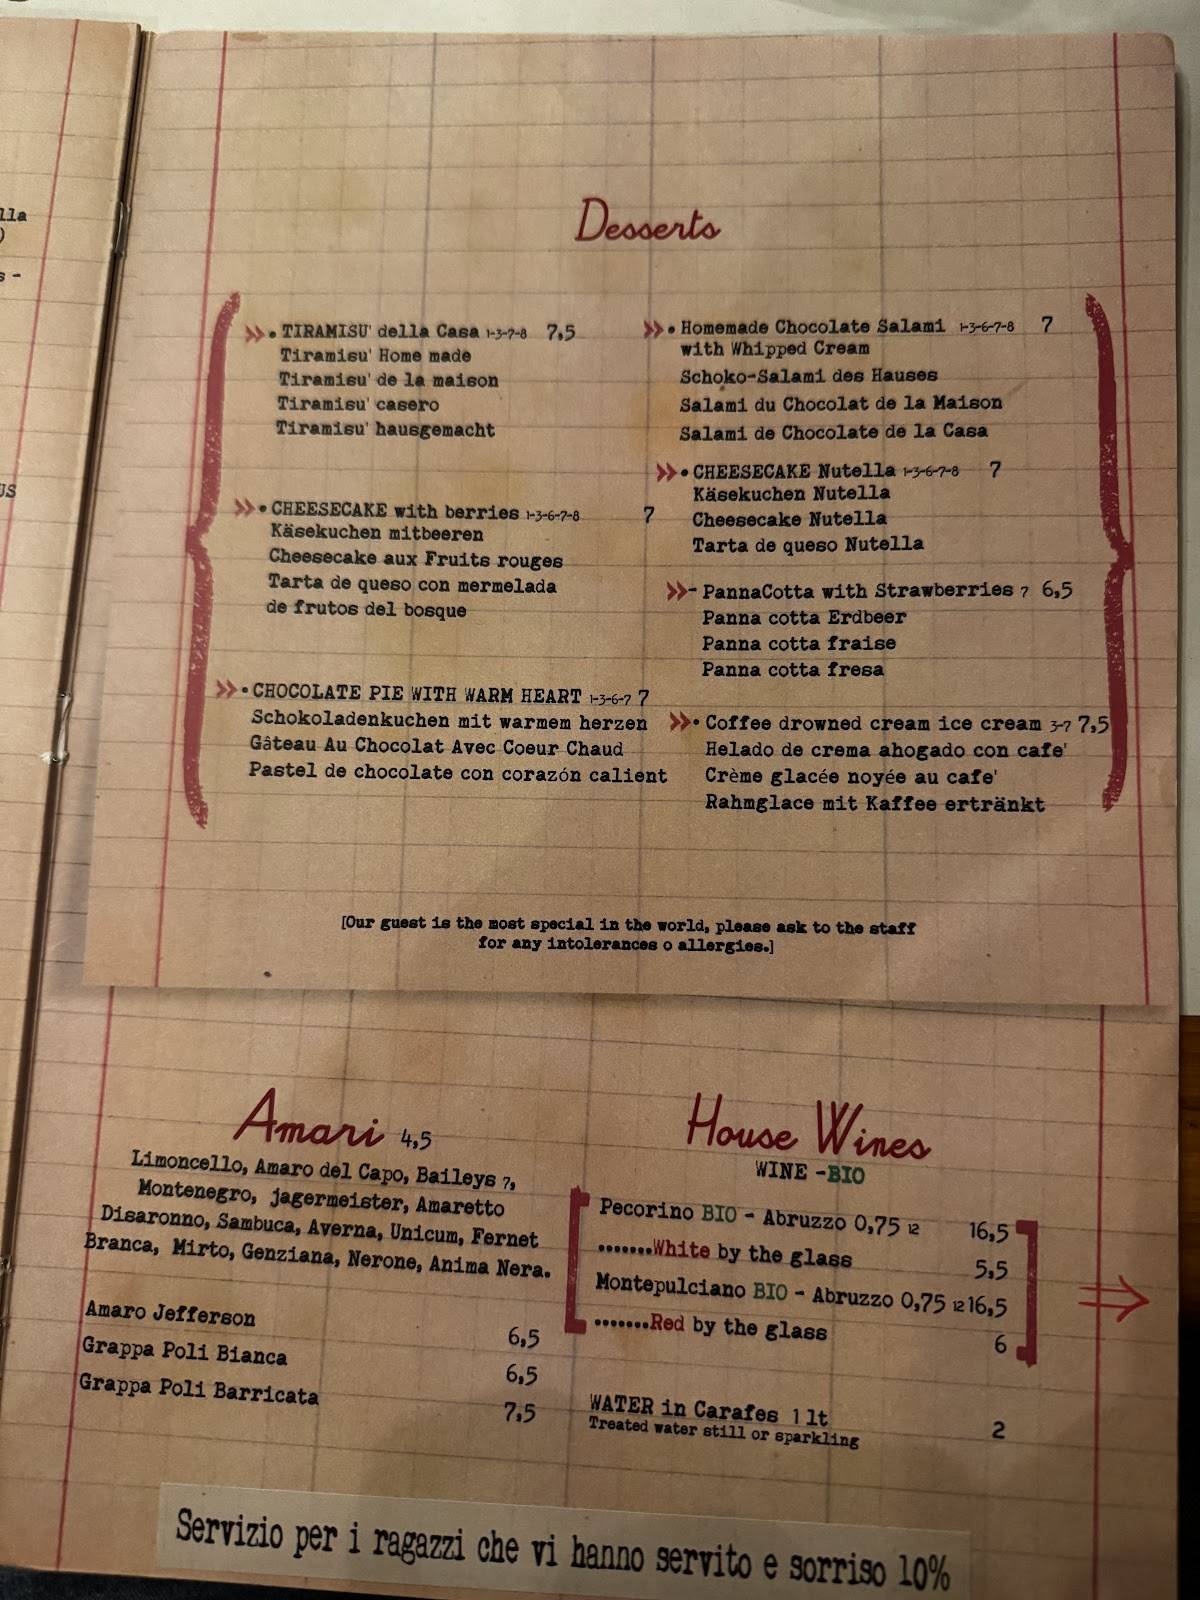 lla
)
s -
US
Desserts
• TIRAMISU' della Casa 1-3-7-8 7,5
Tiramisu' Home made
Tiramisu' de la maison
Tiramisu' casero
Tiramisu' hausgemacht
• CHEESECAKE with berries 1-3-6-7-8 7
Käsekuchen mitbeeren
Cheesecake aux Fruits rouges
Tarta de queso con mermelada
de frutos del bosque
• CHOCOLATE PIE WITH WARM HEART 1-3-6-7 7
Schokoladenkuchen mit warmem herzen
Gâteau Au Chocolat Avec Coeur Chaud
Pastel de chocolate con corazón calient
• Homemade Chocolate Salami 1-3-6-7-8 7
with Whipped Cream
Schoko-Salami des Hauses
Salami du Chocolat de la Maison
Salami de Chocolate de la Casa
• CHEESECAKE Nutella 1-3-6-7-8 7
Käsekuchen Nutella
Cheesecake Nutella
Tarta de queso Nutella
- PannaCotta with Strawberries 7 6,5
Panna cotta Erdbeer
Panna cotta fraise
Panna cotta fresa
• Coffee drowned cream ice cream 3-7 7,5
Helado de crema ahogado con cafe'
Crème glacée noyée au cafe'
Rahmglace mit Kaffee ertränkt
[Our guest is the most special in the world, please ask to the staff
for any intolerances o allergies.]
Amari 4,5
Limoncello, Amaro del Capo, Baileys 7,
Montenegro, jagermeister, Amaretto
Disaronno, Sambuca, Averna, Unicum, Fernet
Branca, Mirto, Genziana, Nerone, Anima Nera.
Amaro Jefferson 6,5
Grappa Poli Bianca 6,5
Grappa Poli Barricata 7,5
House Wines
WINE -BIO
Pecorino BIO - Abruzzo 0,75 12 16,5
.......White by the glass 5,5
Montepulciano BIO - Abruzzo 0,75 12 16,5
.......Red by the glass 6
WATER in Carafes 1 lt 2
Treated water still or sparkling
Servizio per i ragazzi che vi hanno servito e sorriso 10%